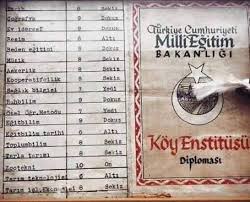 Coğrafya 9 Dokuz
Ev idaresi 9 Dokuz
Resim 6 Altı
Beden eğitimi 9 Dokuz
Müzik 8 Sekiz
Askerlik 8 Sekiz
Kooperatifcilik 8 Sekiz
Sağlık bilgisi 7 Yedi
Ruhbilim 9 Dokuz
Özel Öğr.Metodu 7 Yedi
Eğitbilim 9 Dokuz
Eğitbilim tarihi 6 Altı
Toplumbilim 8 Sekiz
Tarla tarımı 8 Sekiz
Zootekni 10 On
Tarım teknolojisi 6 Altı
Tarım işl.Ekonomisi 8 Sekiz
Türkiye Cumhuriyeti
Millî Eğitim
BAKANLIĞI
Köy Enstitüsü
Diploması